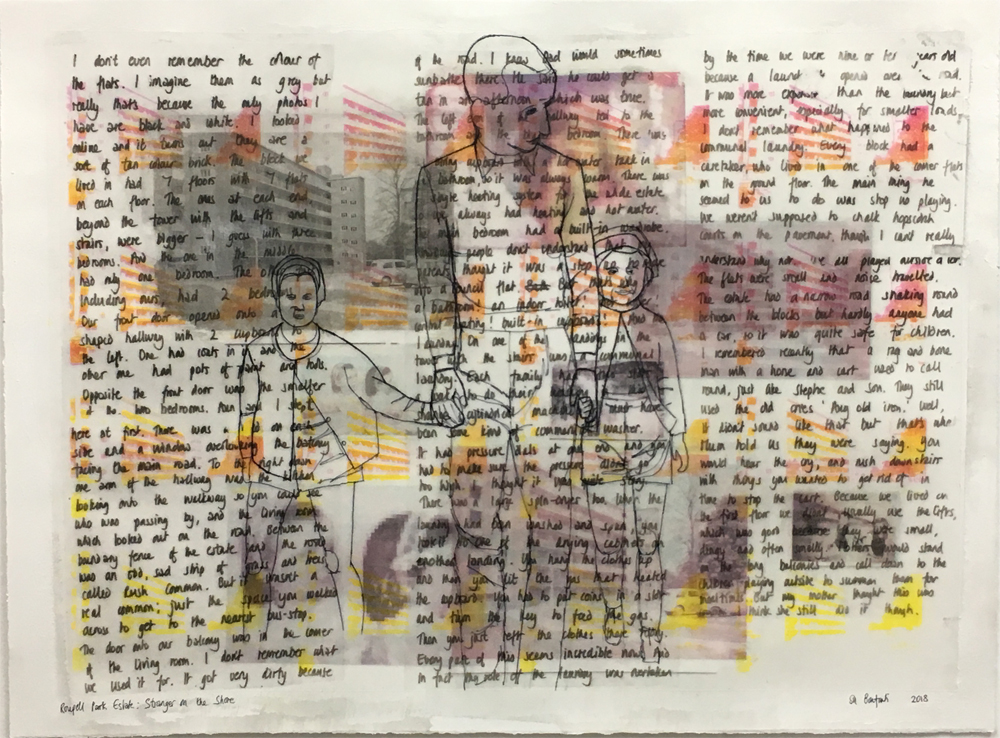 I don't even remember the colour of
the flats. I imagine them as grey but
really that's because the only photos I
have are black and white. I looked
online and it turns out they are a
sort of tan colour brick. The block we
lived in had 7 floors with 7 flats
on each floor. The ones at each end
beyond the tower with the lifts and
stairs, were bigger – I guess with three
bedrooms. And the one in the middle
had only one bedroom. The
including ours, had 2 bedrooms
Our front door opened onto a
shaped hallway with 2 cupboards to
the left. One had coats in it and the
other one had pots of paint and tools.
Opposite the front door was the smaller
of the two bedrooms. and I slept
here at first. There was a bed on each
side and a window overlooking the balcony
facing the main road. To the right down
one arm of the hallway was the kitchen
looking onto the walkway so you could see
who was passing by, and the living room
which looked out on the road. Between the
boundary fence of the estate and the road
was an odd sad strip of grass and trees
called Rush Common. But it wasn't a
real common, just the space you walked
across to get to the nearest bus-stop.
The door onto our balcony was in the corner
of the living room. I don't remember what
we used it for. It got very dirty because
of the road. I know Dad would sometimes
sunbathe there. He said he could get a
tan in an afternoon which was true.
The left hallway led to the
bathroom and the big bedroom. There was
airing cupboard with a hot water tank in
bathroom, so it was always warm. There was
single heating system for the whole estate
we always had heating and hot water.
The main bedroom had built-in wardrobe.
people don't understand that
parents thought it was a step up to move
into a council flat. But that's why
a bathroom, an indoor toilet,
heating! built-in cupboards! And no
On one of the landings in the
tower with the stairs was communal
laundry. Each family had
to do their
cylindrical must have
been some kind of communal washer.
It had pressure dials at one end and you
had to make sure the pressure didn't go
too high. I thought it was
There was a large spin-dryer too. When the
laundry had been washed and spun you
took it to one of the drying cabinets on
another landing. You hang the clothes up
and then you lit the gas that heated
the cupboard. You had to put coins in a slot
and turn the key to feed the gas.
Then you just left the clothes there to dry.
Every part of this seems incredible now. And
in fact my role of the laundry was
by the time we were nine or ten years old
because a laundry opened over road.
It was more expensive than the laundry but
more convenient, especially for smaller loads.
I don't remember what happened to the
communal laundry. Every block had a
caretaker, who lived in one of the corner flats
on the ground floor. The main thing he
seemed to us to do was stop us playing.
We weren't supposed to chalk hopscotch
courts on the pavement, though I can't really
understand why not. We all played out
The flats were small and noise travelled.
The estate had a narrow road snaking round
between the blocks but hardly anyone had
a car so it was quite safe for children.
I remembered recently that a rag and bone
man with a horse and cart used to call
round, just like Steptoe and Son. They still
used the old cries Any old iron. Well,
it didn't sound like that but that's what
Mum told us they were saying. You
would hear the cry, and rush downstairs
with things you wanted to get rid of in
time to stop the cart. Because we lived on
the first floor we didn't usually use the lifts,
which was good because they were small,
dingy and often smelly. Mothers would stand
on the long balconies and call down to the
children playing outside to summon them for
mealtimes. But my mother thought this was
think she still did it though.
Roupell Park Estate: Stranger on the Shore
2018